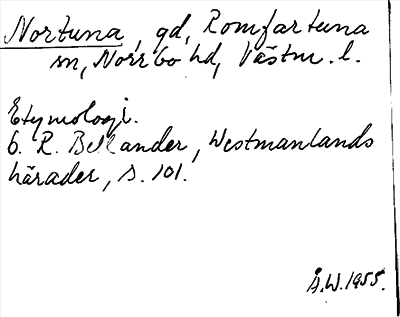 Nortuna, gd, Romfartuna
sn, Norrbo hd, Västm. l.
Etymologi.
G. R. Bellander, Westmanlands
härader, s. 101.
Å.W. 1955.